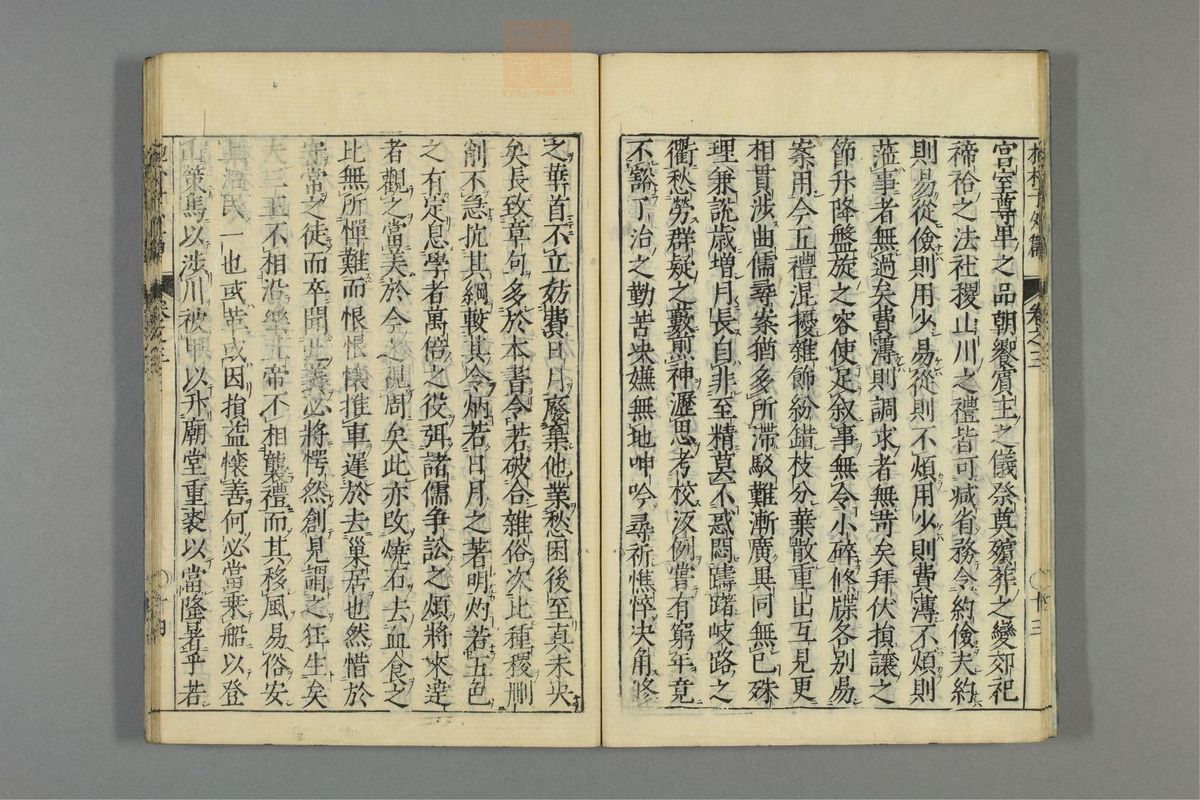 宮室尊卑之品朝饗賓主之儀祭奠殯葬之變郊祀
禘祫之法社稷山川之禮皆可减省務令約儉夫約
則易從儉則用少易從則不煩用少則費薄不煩則
蒞事者無過矣費薄則調求者無苛矣拜伏揖讓之
節升降盤旋之容使足叙事無令小碎條牒各別易
案用今五禮混擾雜飾紛錯枝分葉散重出互見更
相貫涉曲儒尋案猶多所滯駁難漸廣異同無已殊
理兼說歳增月長自非至精莫不惑悶躊躇岐路之
衢愁勞群疑之藪煎神瀝思考校叛例嘗有窮年竟
不豁了治之勤苦决嫌無地呻吟尋祈憔悴决角修
之華首不立妨費日月廢棄他業愁困後至真未央
矣長致章句多於本書今若破合雜俗次比種稷刪
削不急抗其綱較其令炳若日月之著明灼若五色
之有定息學者萬倍之役弭諸儒争訟之煩將來達
者觀之當美於今之視周矣此亦改燒石去血食之
比無所憚難而恨恨懷推車遲於去巢居也然惜於
守常之徒而卒聞此義必將愕然創見謂之狂生矣
夫三王不相沿樂五帝不相襲禮而其移風易俗安
其治民一也或革或因損益懷善何必當乘船以登
山策馬以涉川被甲以升廟堂重裘以當隆暑乎若
抱朴子外篇
卷之三
十三